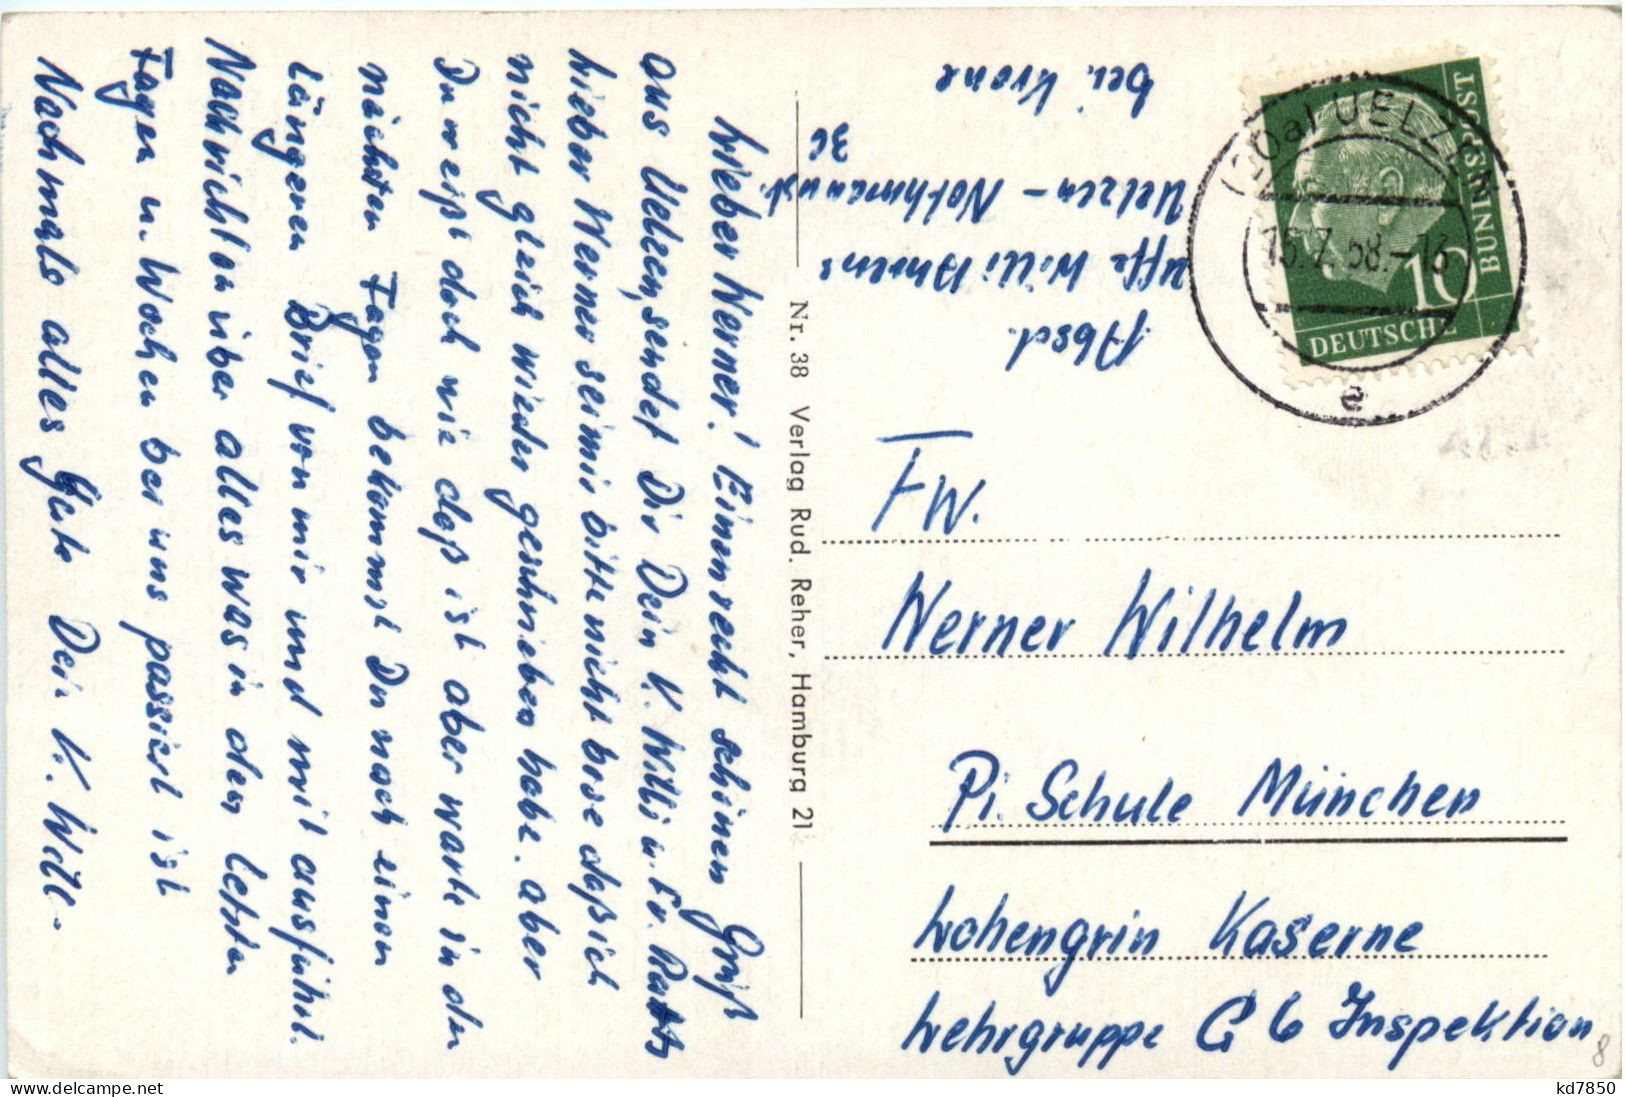 Lieber Werner! Einen recht schönen Gruß
aus Uelzen, sendet Dir Dein K. Willi u.
Lieber Werner sei mir bitte nicht böse daß ich
nicht gleich wieder geschrieben habe. aber
Du weißt doch wie daß ist aber warte in den
nächsten Tagen bekommst Du noch einen
längeren Brief von mir und mit ausführl.
Nachrichten über alles was in den letzten
Tagen u. Wochen bei uns passiert ist
Nochmals alles Gute Dein K. Willi.
Nr. 38 Verlag Rud. Reher, Hamburg 21
Absd.
Uffz Willi Ahrens
Uelzen - Nothmannstr.
36
bei Krone
UELZEN
15.7.58.-18
e
10
DEUTSCHE
BUNDESPOST
FW.
Werner Wilhelm
Pi. Schule München
Lohengrin Kaserne
Lehrgruppe C 6 Inspektion
8
delcampe.net
kd7850